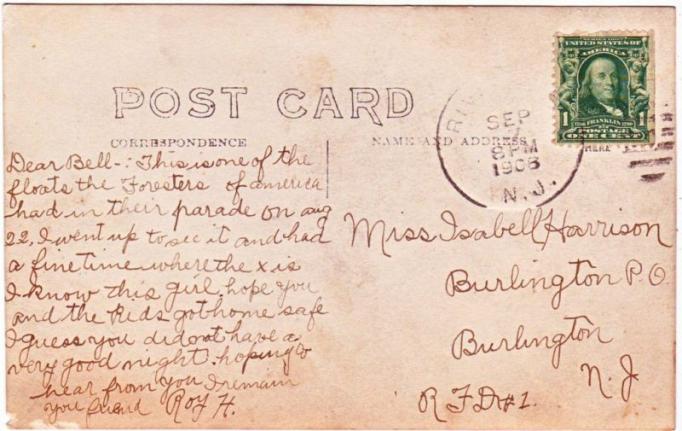 POST CARD
CORRESPONDENCE
NAME AND ADDRESS
HERE
UNITED STATES OF
AMERICA
1 FRANKLIN 1
POSTAGE
ONE CENT
RIV
SEP
8 PM
1906
N.J.
Dear Bell-: This is one of the
floats the Foresters of america
had in their parade on aug
22. I went up to see it and had
a fine time where the x is
I know this girl, hope you
and the Kids got home safe
I guess you did not have a
very good night. hoping to
hear from you I remain
you friend Roy H.
Miss Isabell Harrison
Burlington P.O.
Burlington
N. J
R F D #1.